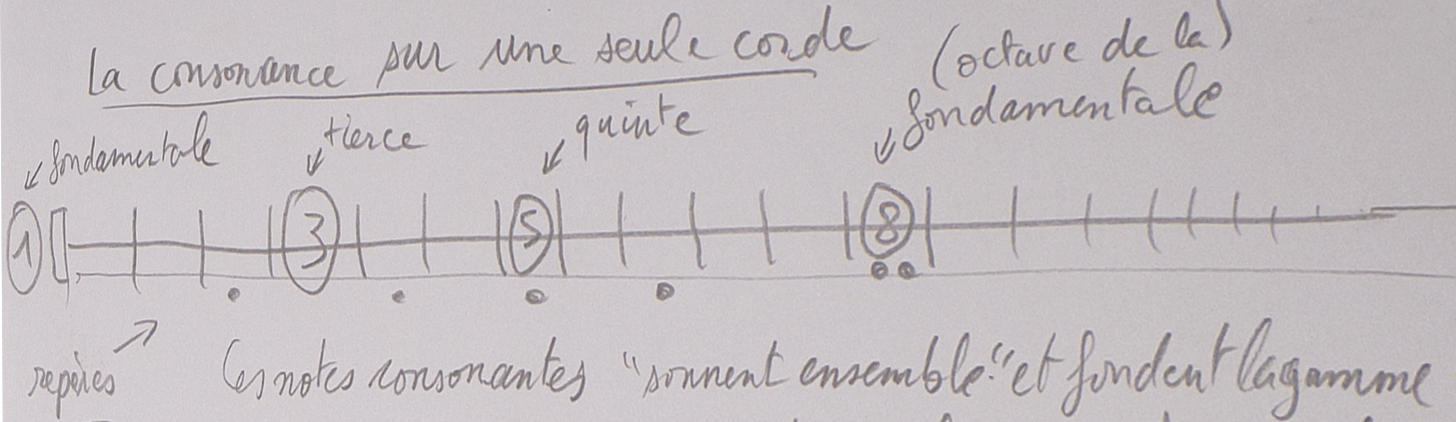 La consonance sur une seule corde
(octave de la)
fondamentale
fondamentale
tierce
quinte
1
3
5
8
repères
Ces notes consonantes "sonnent ensemble" et fondent la gamme